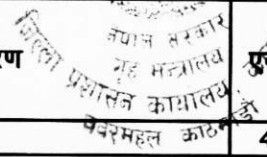 नेपाल सरकार
गृह मन्त्रालय
जिल्ला प्रशासन कार्यालय
बबरमहल काठमाडौं
रण
4